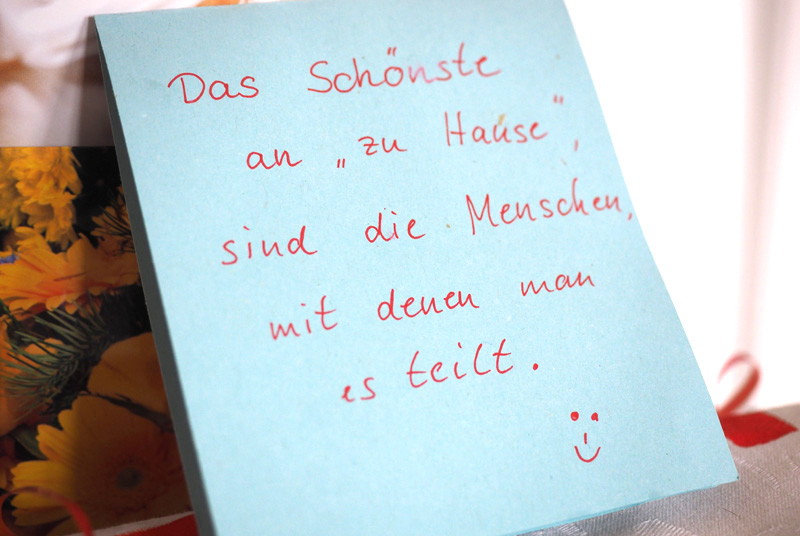 Das Schönste
an „zu Hause",
sind die Menschen,
mit denen man
es teilt.